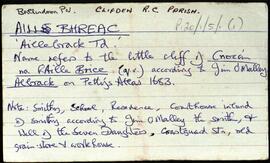 Ballindoon PH. CLIFDEN R.C. PARISH.
P120/1/5/ (1)
AILL BHREAC
'Aille brack Td'
Name refers to the little cliff of Cnoicín
na hAille Brice (q.v.) according to Jim O'Malley
Ailbrack on Petty's Atlas 1683.
Note: Smithy, School, Residence, Courthouse inland
of smithy according to Jim O'Malley the smith, &
Well of the Seven Daughters, Coastguard stn, old
grain store & workhouse.